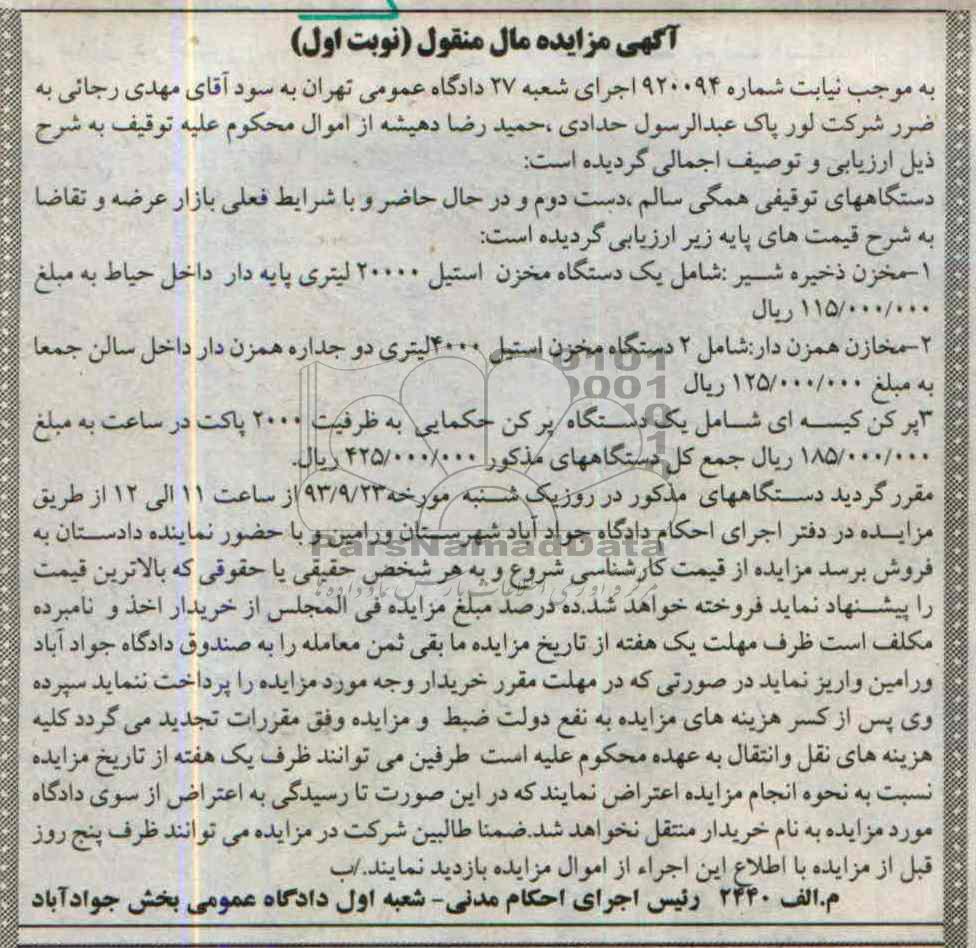 آگهی مزایده مال منقول (نوبت اول)
به موجب نیابت شماره ۹۲۰۰۹۴ اجرای شعبه ۲۷ دادگاه عمومی تهران به سود آقای مهدی رجائی به
ضرر شرکت لور پاک عبدالرسول حدادی ،حمید رضا دهیشه از اموال محکوم علیه توقیف به شرح
ذیل ارزیابی و توصیف اجمالی گردیده است:
دستگاههای توقیفی همگی سالم ،دست دوم و در حال حاضر و با شرایط فعلی بازار عرضه و تقاضا
به شرح قیمت های پایه زیر ارزیابی گردیده است:
۱-مخزن ذخیره شیر :شامل یک دستگاه مخزن استیل ۲۰۰۰۰ لیتری پایه دار داخل حیاط به مبلغ
۱۱۵/۰۰۰/۰۰۰ ریال
۲-مخازن همزن دار:شامل ۲ دستگاه مخزن استیل ۴۰۰۰لیتری دو جداره همزن دار داخل سالن جمعا
به مبلغ ۱۲۵/۰۰۰/۰۰۰ ریال
۳پر کن کیسه ای شامل یک دستگاه پر کن حکمایی به ظرفیت ۲۰۰۰ پاکت در ساعت به مبلغ
۱۸۵/۰۰۰/۰۰۰ ریال جمع کل دستگاههای مذکور ۴۲۵/۰۰۰/۰۰۰ ریال.
مقرر گردید دستگاههای مذکور در روزیک شنبه مورخه۹۳/۹/۲۳ از ساعت ۱۱ الی ۱۲ از طریق
مزایده در دفتر اجرای احکام دادگاه جواد آباد شهرستان ورامین و با حضور نماینده دادستان به
فروش برسد مزایده از قیمت کارشناسی شروع و به هر شخص حقیقی یا حقوقی که بالاترین قیمت
را پیشنهاد نماید فروخته خواهد شد.ده درصد مبلغ مزایده فی المجلس از خریدار اخذ و نامبرده
مکلف است ظرف مهلت یک هفته از تاریخ مزایده ما بقی ثمن معامله را به صندوق دادگاه جواد آباد
ورامین واریز نماید در صورتی که در مهلت مقرر خریدار وجه مورد مزایده را پرداخت ننماید سپرده
وی پس از کسر هزینه های مزایده به نفع دولت ضبط و مزایده وفق مقررات تجدید می گردد کلیه
هزینه های نقل وانتقال به عهده محکوم علیه است طرفین می توانند ظرف یک هفته از تاریخ مزایده
نسبت به نحوه انجام مزایده اعتراض نمایند که در این صورت تا رسیدگی به اعتراض از سوی دادگاه
مورد مزایده به نام خریدار منتقل نخواهد شد.ضمنا طالبین شرکت در مزایده می توانند ظرف پنج روز
قبل از مزایده با اطلاع این اجراء از اموال مزایده بازدید نمایند./ب
م.الف ۲۴۴۰ رئیس اجرای احکام مدنی- شعبه اول دادگاه عمومی بخش جوادآباد
ParsNamadData